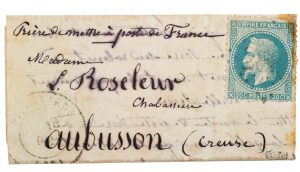 Prière de mettre à poste de France
EMPIRE FRANÇAIS
Madame
L. Roseleur
Chabassière
20C POSTES 20C
aubusson (Creuse)